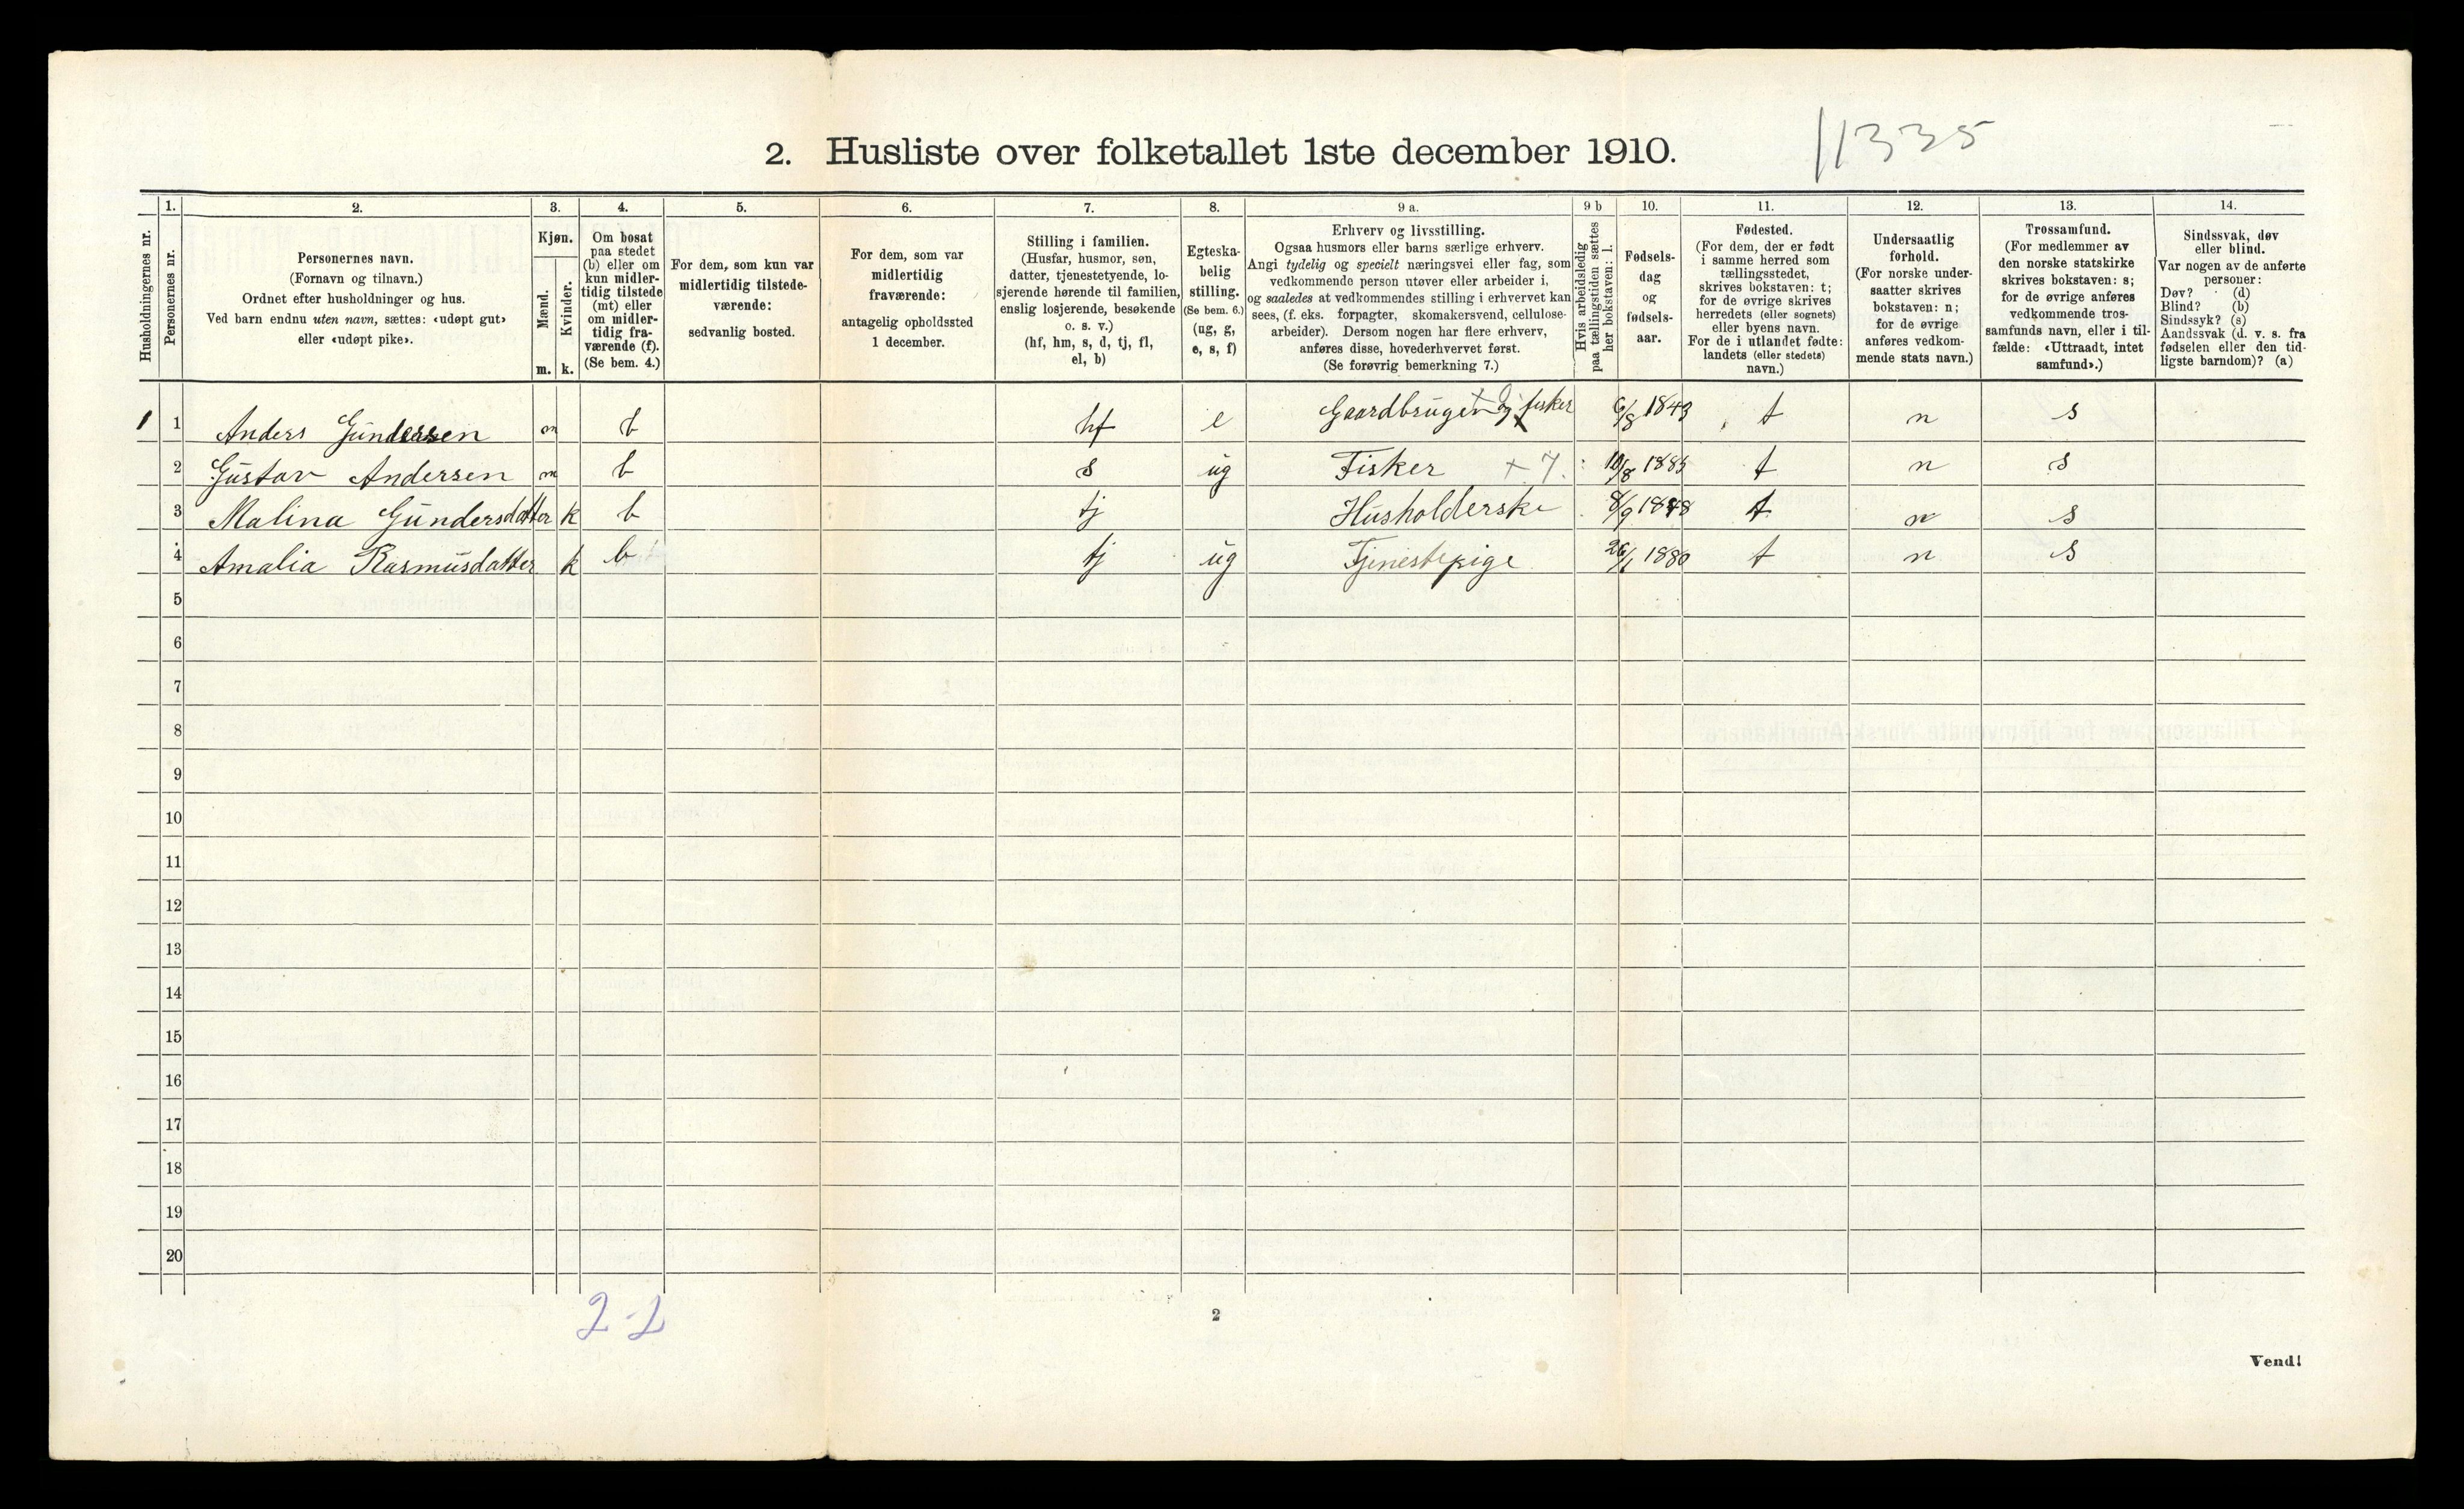 11335
2. Husliste over folketallet 1ste december 1910.
Husholdningernes nr.
1.
Personernes nr.
2.
Personernes navn.
(Fornavn og tilnavn.)
Ordnet efter husholdninger og hus.
Ved barn endnu uten navn, sættes: «udøpt gut»
eller «udøpt pike».
3.
Kjøn.
Mænd.
Kvinder.
m. k.
4.
Om bosat
paa stedet
(b) eller om
kun midler-
tidig tilstede
(mt) eller
om midler-
tidig fra-
værende (f).
(Se bem. 4.)
5.
For dem, som kun var
midlertidig tilstede-
værende:
sedvanlig bosted.
6.
For dem, som var
midlertidig
fraværende:
antagelig opholdssted
1 december.
7.
Stilling i familien.
(Husfar, husmor, søn,
datter, tjenestetyende, lo-
sjerende hørende til familien,
enslig losjerende, besøkende
o. s. v.)
(hf, hm, s, d, tj, fl,
el, b)
8.
Egteska-
belig
stilling.
(Se bem. 6.)
(ug, g,
e, s, f)
9 a.
Erhverv og livsstilling.
Ogsaa husmors eller barns særlige erhverv.
Angi tydelig og specielt næringsvei eller fag, som
vedkommende person utøver eller arbeider i,
og saaledes at vedkommendes stilling i erhvervet kan
sees, (f. eks. forpagter, skomakersvend, cellulose-
arbeider). Dersom nogen har flere erhverv,
anføres disse, hovederhvervet først.
(Se forøvrig bemerkning 7.)
9 b
Hvis arbeidsledig
paa tællingstiden sættes
her bokstaven: l.
10.
Fødsels-
dag
og
fødsels-
aar.
11.
Fødested.
(For dem, der er født
i samme herred som
tællingsstedet,
skrives bokstaven: t;
for de øvrige skrives
herredets (eller sognets)
eller byens navn.
For de i utlandet fødte:
landets (eller stedets)
navn.)
12.
Undersaatlig
forhold.
(For norske under-
saatter skrives
bokstaven: n;
for de øvrige
anføres vedkom-
mende stats navn.)
13.
Trossamfund.
(For medlemmer av
den norske statskirke
skrives bokstaven: s;
for de øvrige anføres
vedkommende tros-
samfunds navn, eller i til-
fælde: «Uttraadt, intet
samfund».)
14.
Sindssvak, døv
eller blind.
Var nogen av de anførte
personer:
Døv? (d)
Blind? (b)
Sindssyk? (s)
Aandssvak (d. v. s. fra
fødselen eller den tid-
ligste barndom)? (a)
1 1 Anders Gundersen m b hf e Gaardbruger og fisker 6/8 1843 t n s
2 Gustav Andersen m b s ug Fisker + 7. 10/8 1885 t n s
3 Malina Gundersdatter k b tj Husholderske 8/9 1848 t n s
4 Amalia Rasmusdatter k b tj ug Tjenestepige 26/1 1880 t n s
5
6
7
8
9
10
11
12
13
14
15
16
17
18
19
20
2-2
2
Vend!